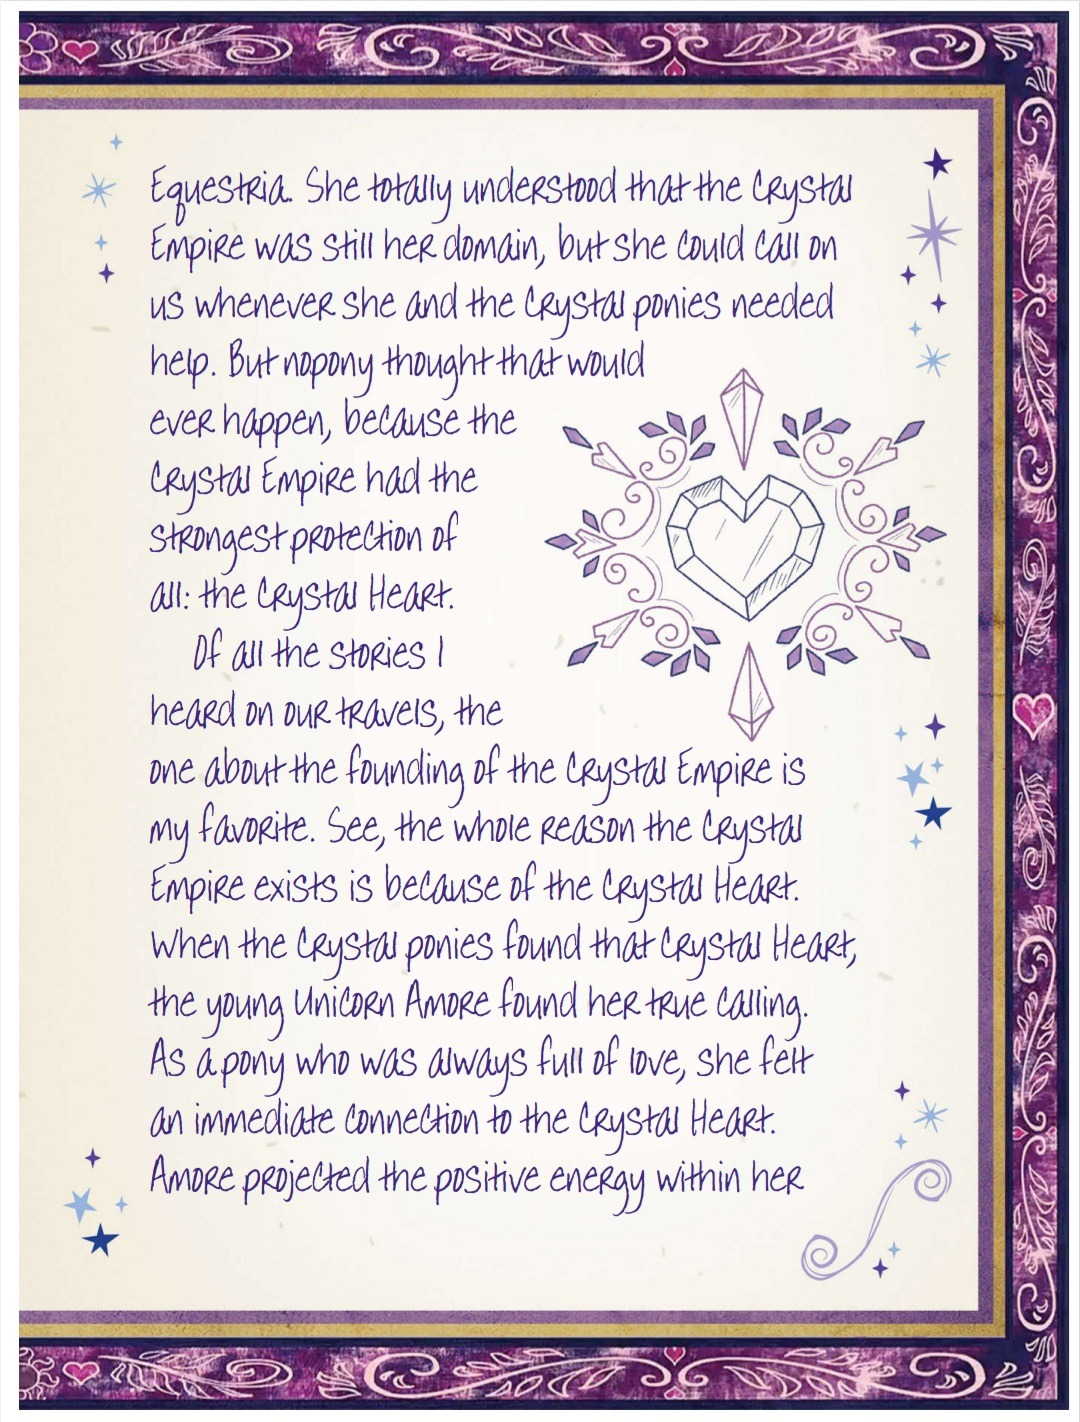 Equestria. She totally understood that the Crystal
Empire was still her domain, but she could call on
us whenever she and the Crystal ponies needed
help. But nopony thought that would
ever happen, because the
Crystal Empire had the
strongest protection of
all: the Crystal Heart.
Of all the stories I
heard on our travels, the
one about the founding of the Crystal Empire is
my favorite. See, the whole reason the Crystal
Empire exists is because of the Crystal Heart.
When the Crystal ponies found that Crystal Heart,
the young Unicorn Amore found her true calling.
As a pony who was always full of love, she felt
an immediate connection to the Crystal Heart.
Amore projected the positive energy within her